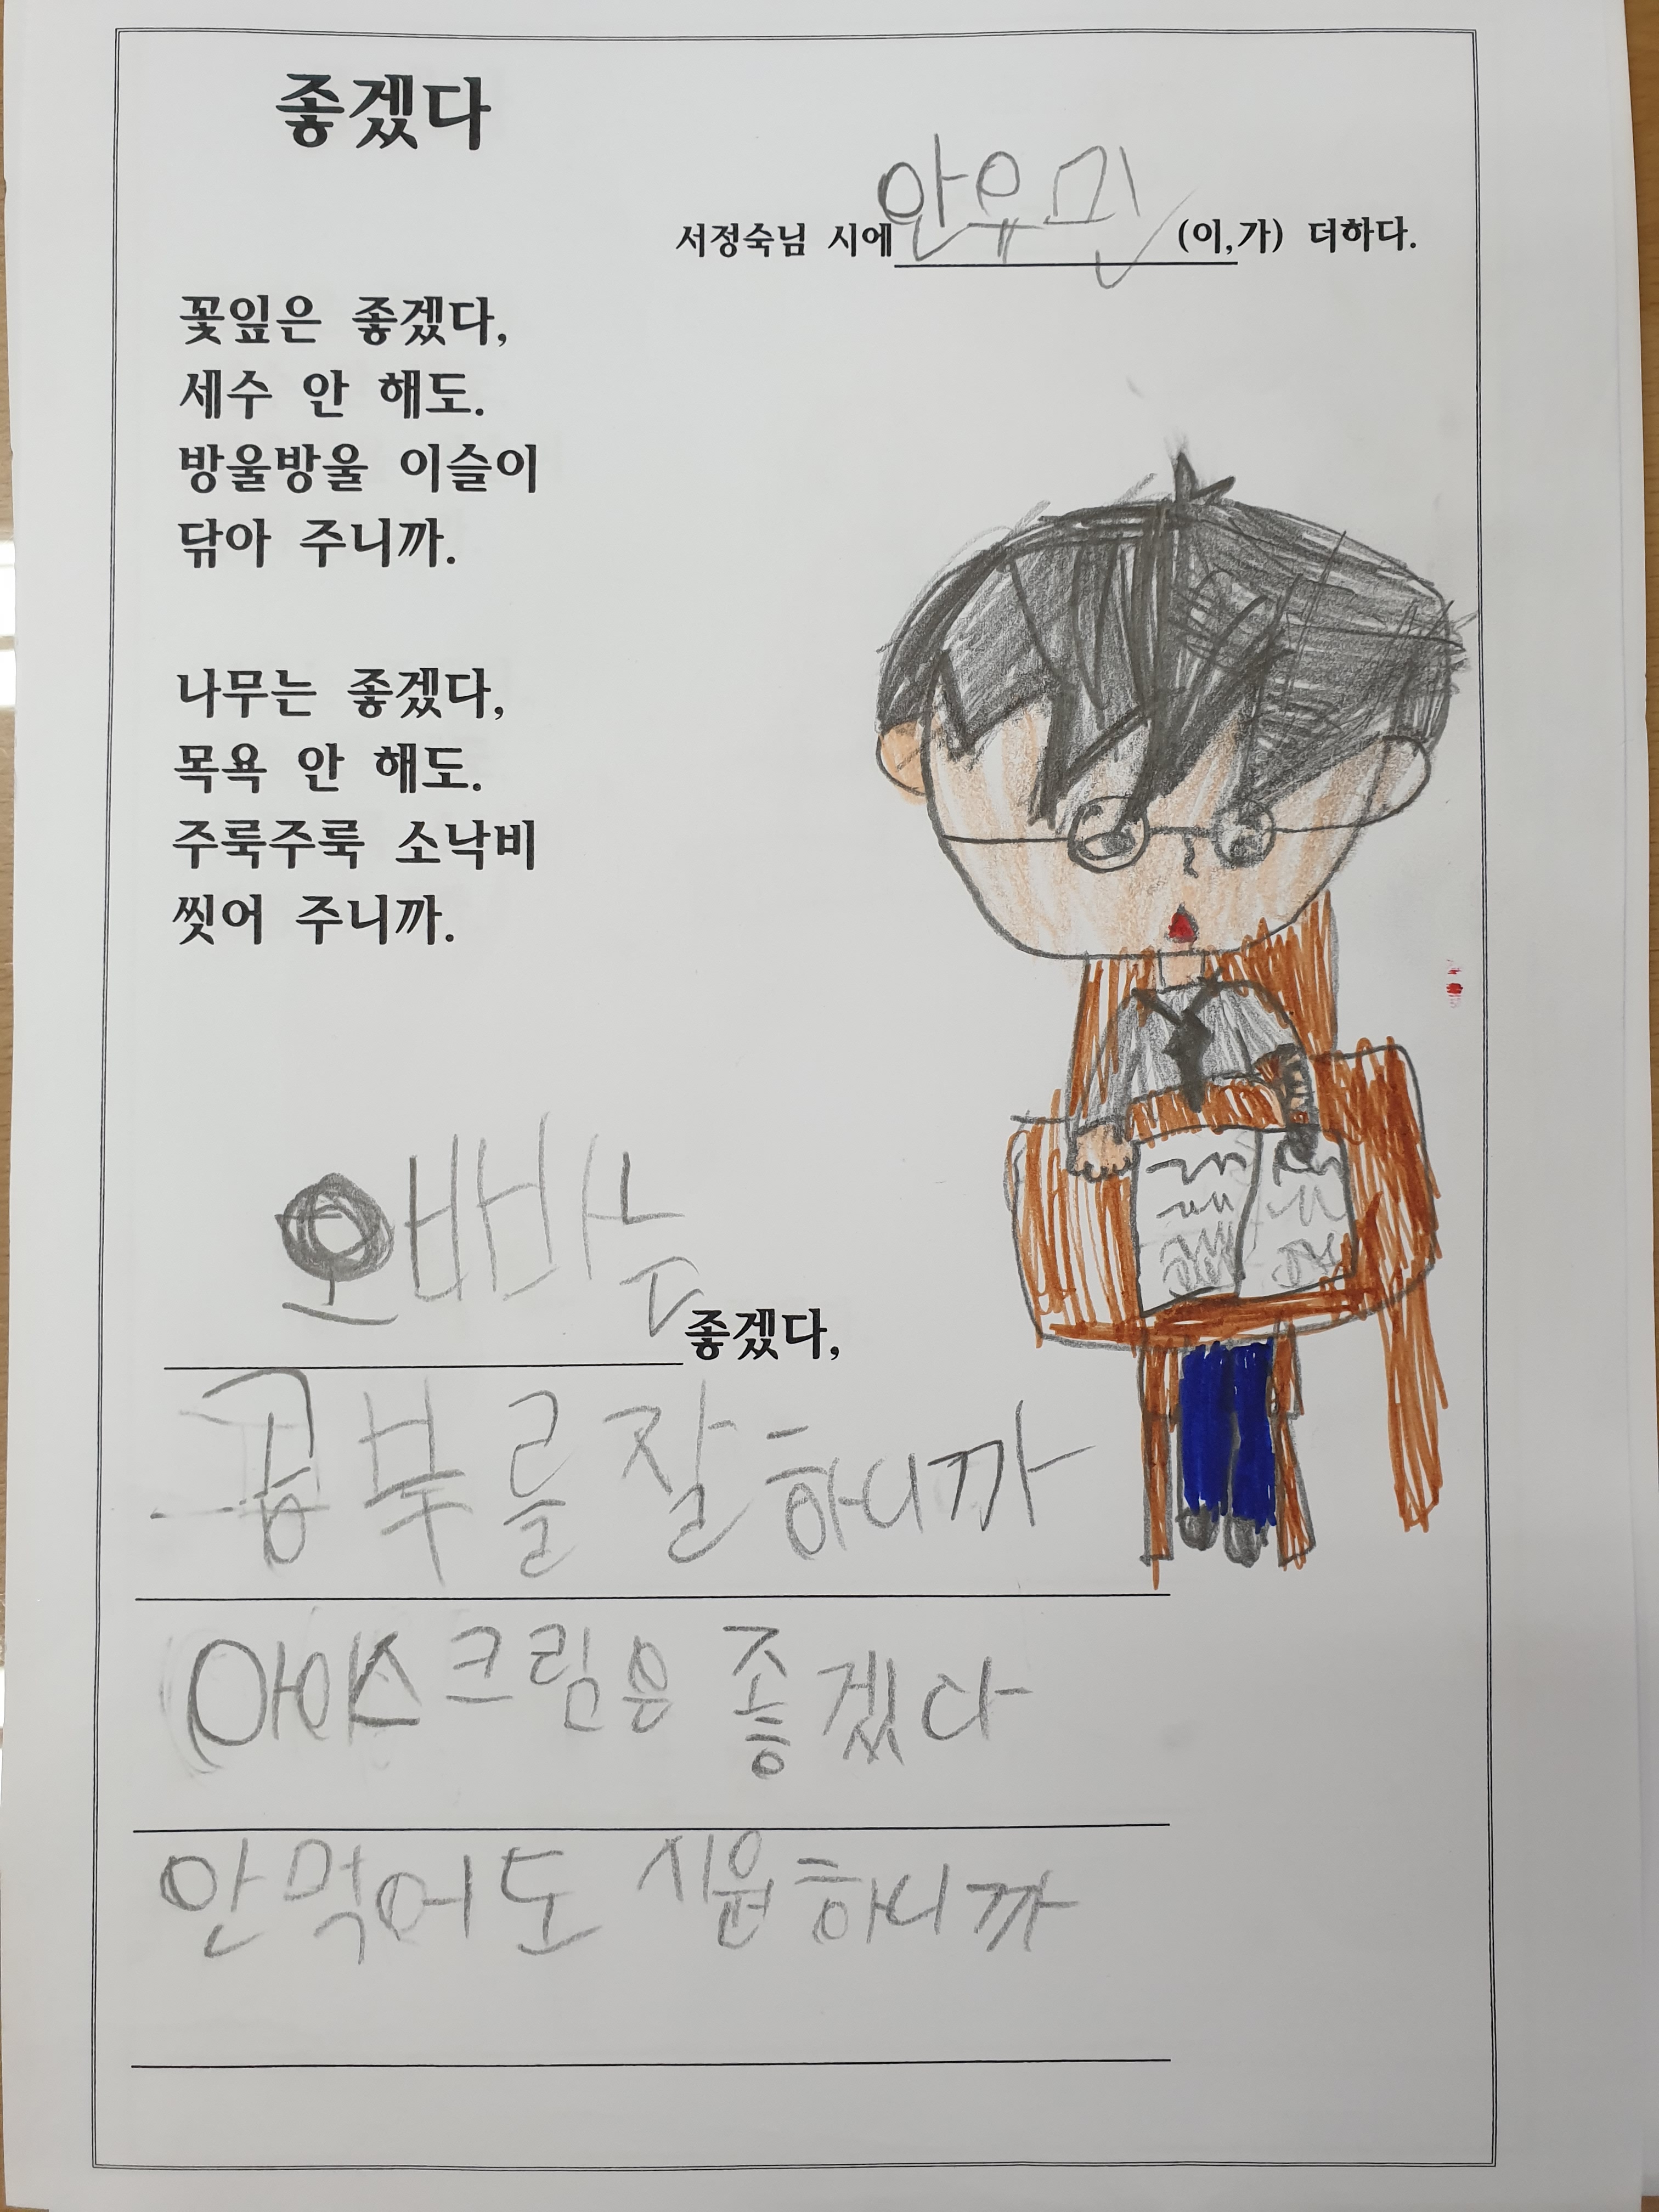 좋겠다
서정숙님 시에 안유민 (이,가) 더하다.
꽃잎은 좋겠다,
세수 안 해도.
방울방울 이슬이
닦아 주니까.
나무는 좋겠다,
목욕 안 해도.
주룩주룩 소낙비
씻어 주니까.
오빠는 좋겠다,
공부를 잘하니까
아이스크림은 좋겠다
안 먹어도 시원하니까